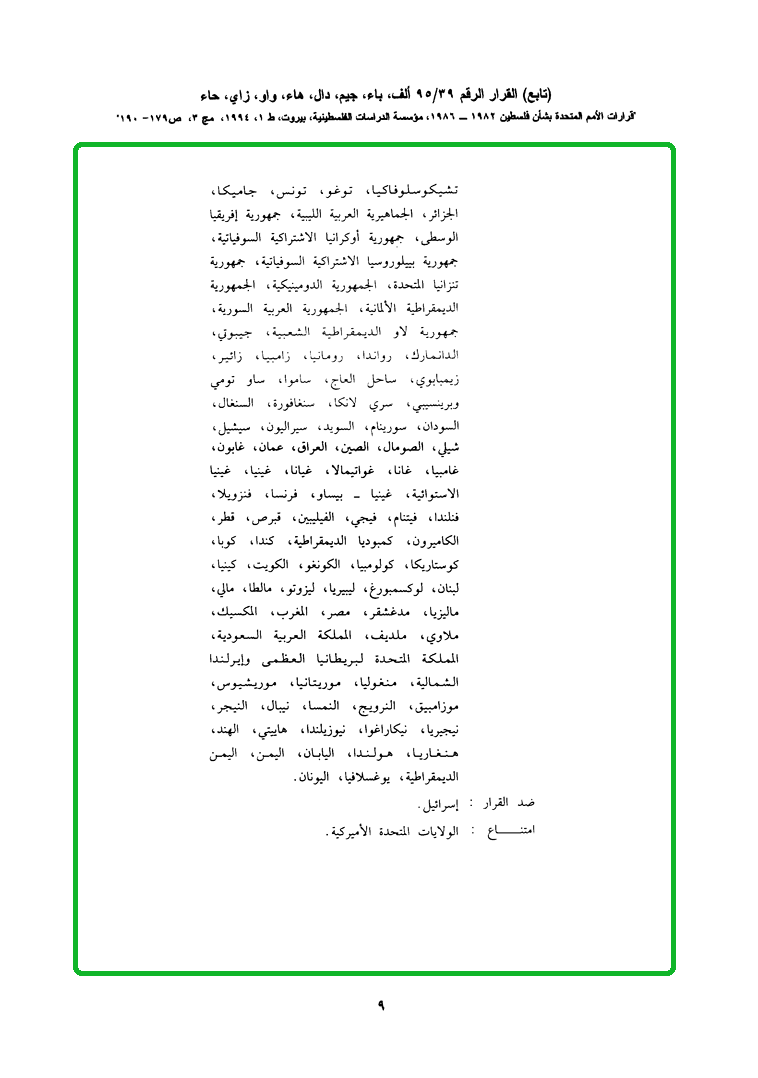 (تابع) القرار الرقم ٩٥/٣٩ ألف، باء، جيم، دال، هاء، واو، زاي، حاء
"قرارات الأمم المتحدة بشأن فلسطين ١٩٨٢ ــ ١٩٨٦، مؤسسة الدراسات الفلسطينية، بيروت، ط ١، ١٩٩٤، مج ٣، ص١٧٩- ١٩٠"
تشيكوسلوفاكيا، توغو، تونس، جاميكا،
الجزائر، الجماهيرية العربية الليبية، جمهورية إفريقيا
الوسطى، جمهورية أوكرانيا الاشتراكية السوفياتية،
جمهورية بييلوروسيا الاشتراكية السوفياتية، جمهورية
تنزانيا المتحدة، الجمهورية الدومينيكية، الجمهورية
الديمقراطية الألمانية، الجمهورية العربية السورية،
جمهورية لاو الديمقراطية الشعبية، جيبوتي،
الدانمارك، رواندا، رومانيا، زامبيا، زائير،
زيمبابوي، ساحل العاج، ساموا، ساو تومي
وبرينسيبي، سري لانكا، سنغافورة، السنغال،
السودان، سورينام، السويد، سيراليون، سيشيل،
شيلي، الصومال، الصين، العراق، عمان، غابون،
غامبيا، غانا، غواتيمالا، غيانا، غينيا، غينيا
الاستوائية، غينيا ـ بيساو، فرنسا، فنزويلا،
فنلندا، فيتنام، فيجي، الفيليبين، قبرص، قطر،
الكاميرون، كمبوديا الديمقراطية، كندا، كوبا،
كوستاريكا، كولومبيا، الكونغو، الكويت، كينيا،
لبنان، لوكسمبورغ، ليبيريا، ليزوتو، مالطا، مالي،
ماليزيا، مدغشقر، مصر، المغرب، المكسيك،
ملاوي، ملديف، المملكة العربية السعودية،
المملكة المتحدة لبريطانيا العظمى وإيرلندا
الشمالية، منغوليا، موريتانيا، موريشيوس،
موزامبيق، النرويج، النمسا، نيبال، النيجر،
نيجيريا، نيكاراغوا، نيوزيلندا، هاييتي، الهند،
هنغاريا، هولندا، اليابان، اليمن، اليمن
الديمقراطية، يوغسلافيا، اليونان.
ضد القرار : إسرائيل.
امتنـــــاع : الولايات المتحدة الأميركية.
٩